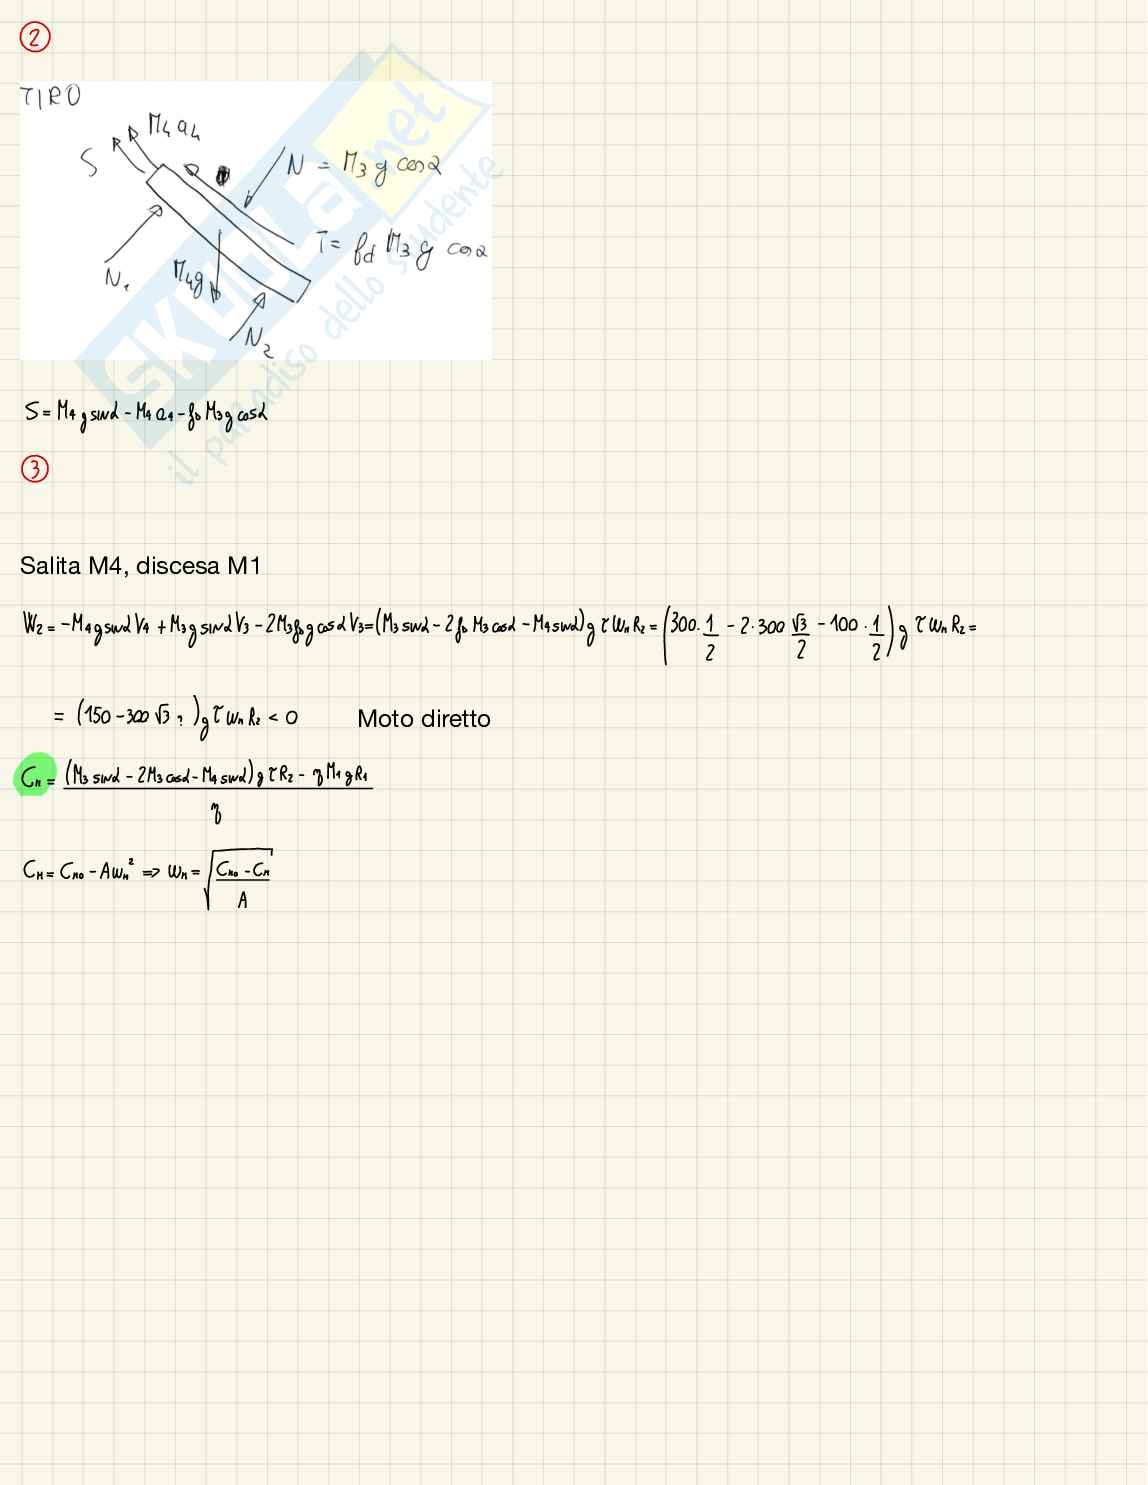 2
TIRO
M₄a₄
S
N = M₃ g cosα
T = fd M₃ g cosα
N₁
M₄g
N₂
SKUOLA.net
il paradiso dello studente
S = M₄ g sinα - M₄ a₄ - f_D M₃ g cosα
3
Salita M4, discesa M1
W₂ = -M₄ g sinα V₄ + M₃ g sinα V₃ - 2M₃ f_D g cosα V₃ = (M₃ sinα - 2 f_D M₃ cosα - M₄ sinα) g τ ω_M R₂ = (300 · 1/2 - 2 · 300 √3/2 - 100 · 1/2) g τ ω_M R₂ =
= (150 - 300 √3 ) g τ ω_M R₂ < 0 Moto diretto
C_M = ((M₃ sinα - 2M₃ cosα - M₄ sinα) g τ R₂ - η M₁ g R₁) / η
C_M = C_M0 - A ω_M² => ω_M = √((C_M0 - C_M) / A)